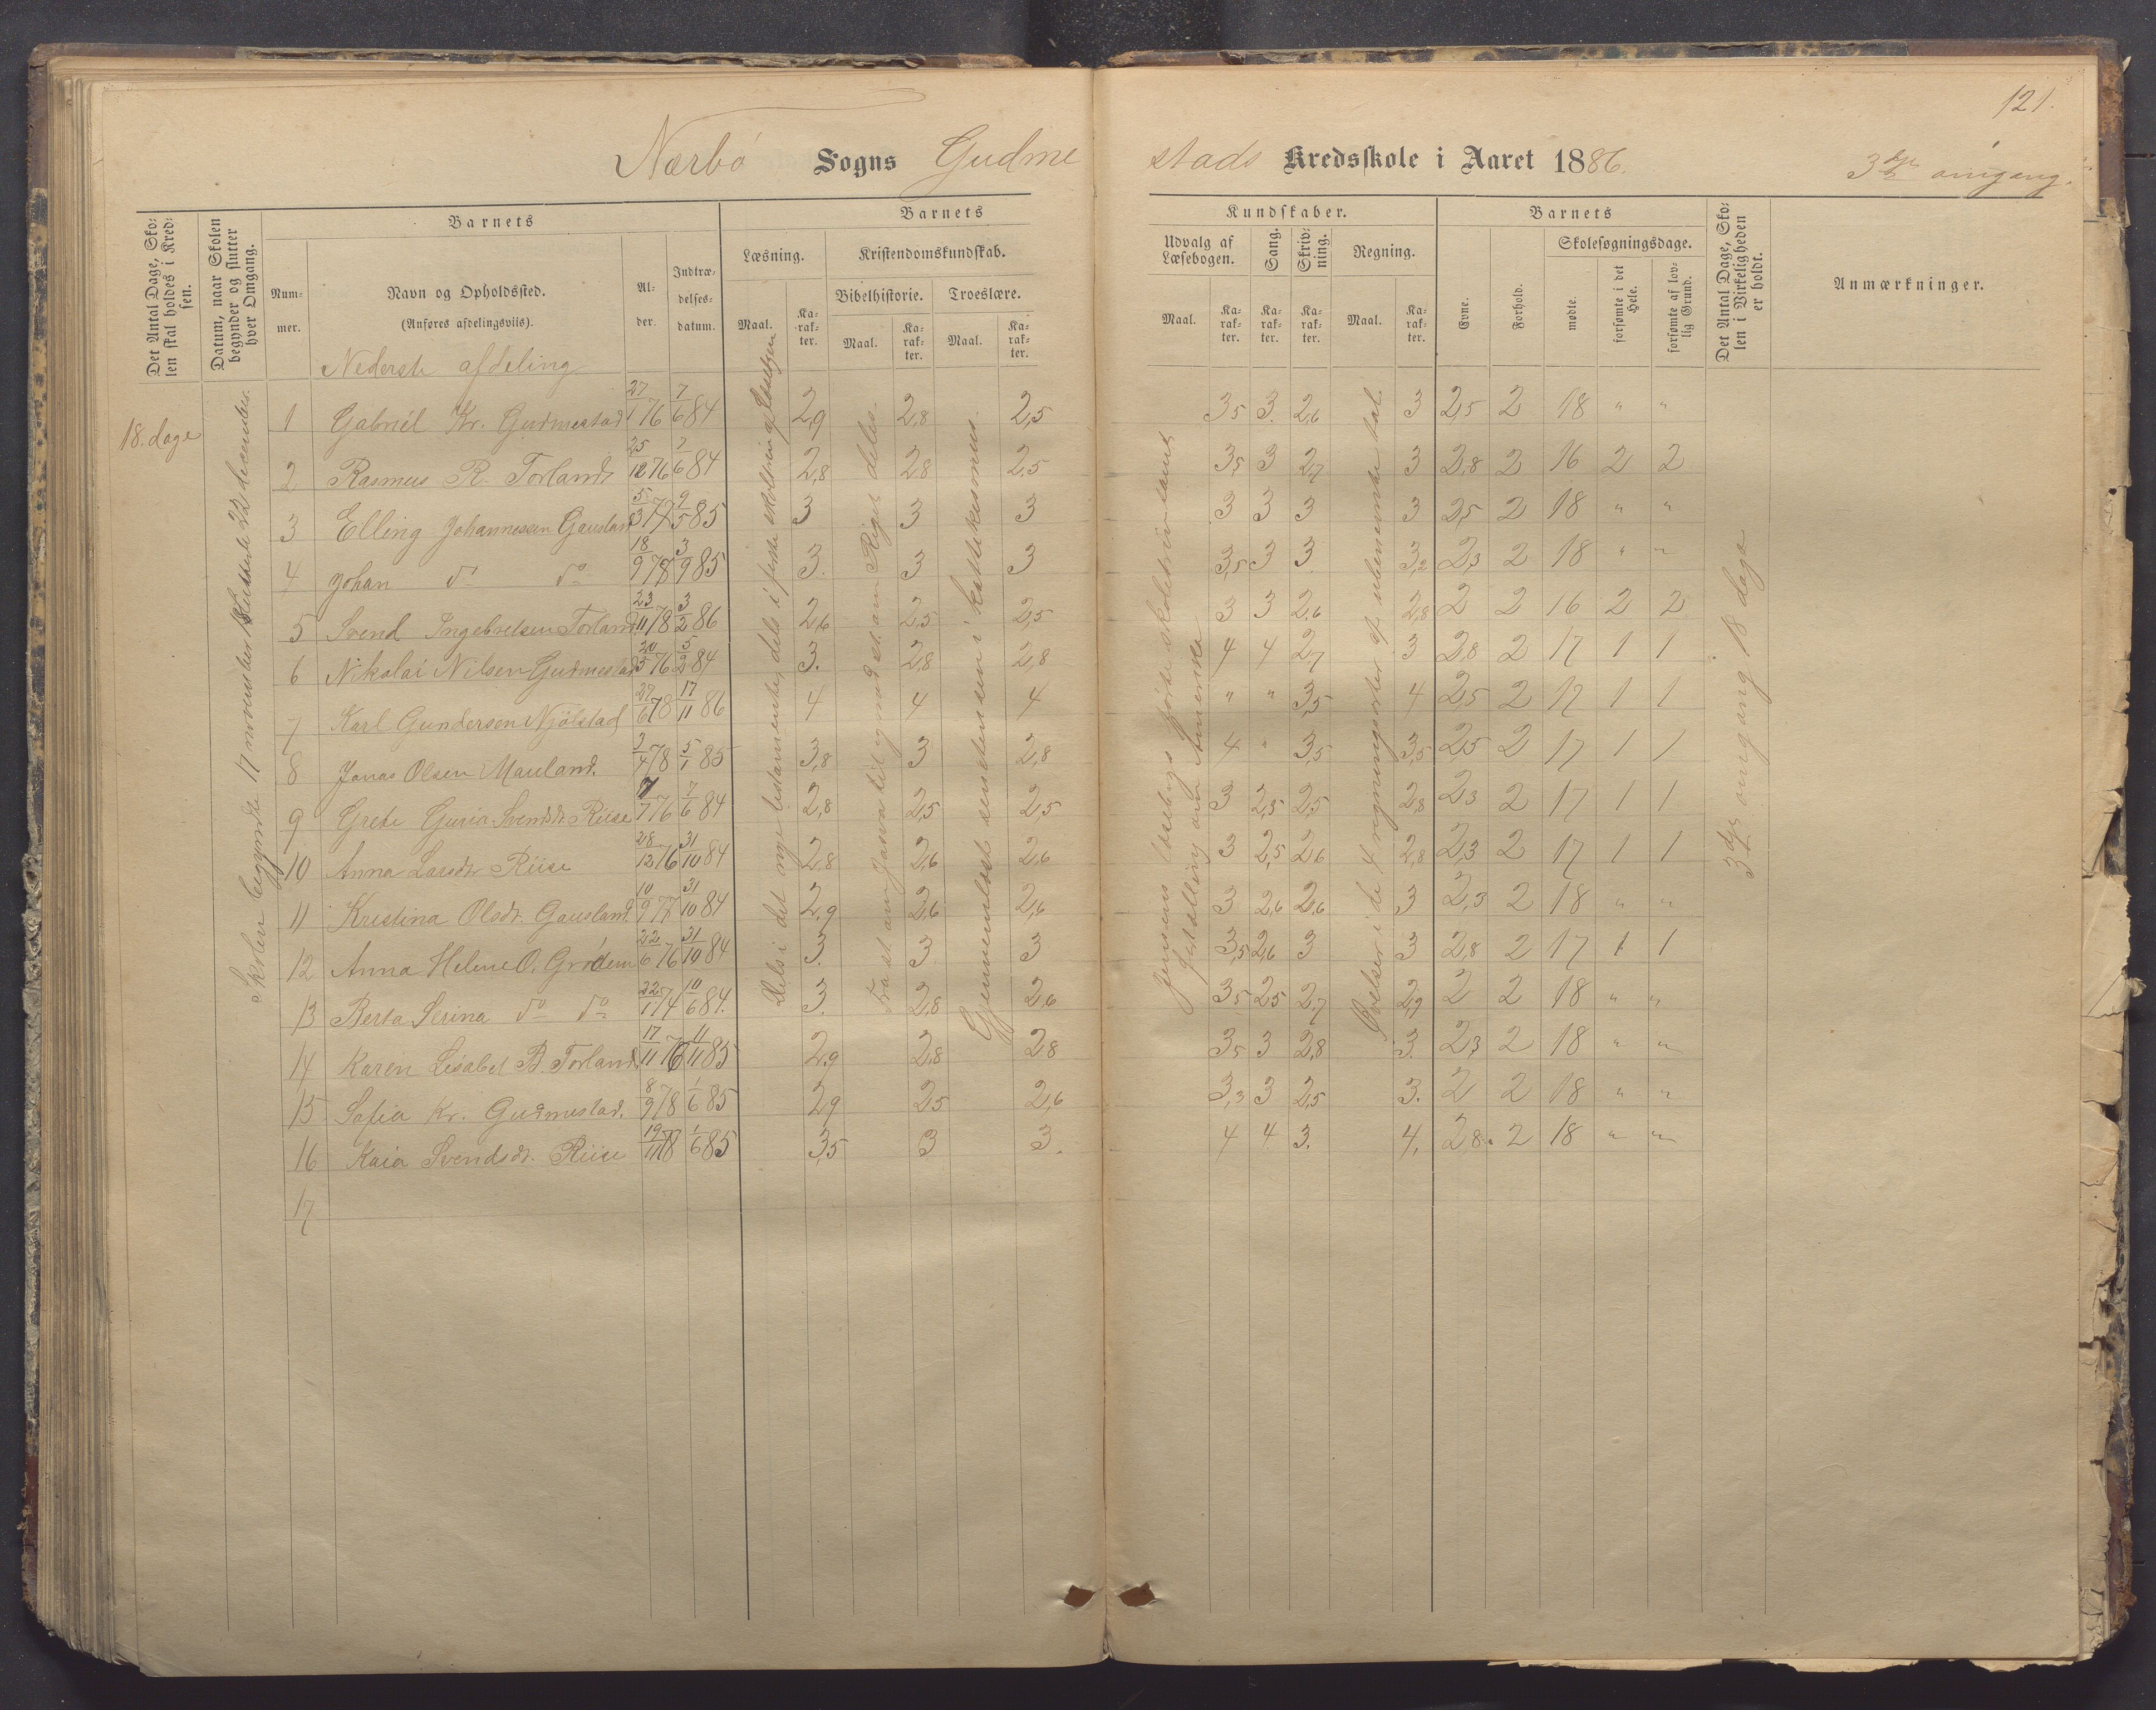 121.
Nærbø Sogns Gudme stads Kredsskole i Aaret 1886. 3die omgang.
Det Antal Dage, Skolen skal holdes i Kredsen.
Datum, naar Skolen begynder og slutter hver Omgang.
Barnets
Nummer.
Navn og Opholdssted.
(Anføres afdelingsviis).
Alder.
Indtrædelsesdatum.
Barnets Kundskaber.
Læsning.
Maal.
Karakter.
Kristendomskundskab.
Bibelhistorie.
Maal.
Karakter.
Troeslære.
Maal.
Karakter.
Udvalg af Læsebogen.
Maal.
Karakter.
Sang.
Karakter.
Skrivning.
Karakter.
Regning.
Maal.
Karakter.
Barnets
Evne.
Forhold.
Skolesøgningsdage.
mødte.
forsømte i det Hele.
forsømte af lovlig Grund.
Det Antal Dage, Skolen i Virkeligheden er holdt.
Anmærkninger.
Nederste afdeling
18. dage
Skolen begyndte 17 november Sluttede 22 december.
1 Gabriel Kr. Gudmestad 27/1 76 7/6 84 2,9 2,8 2,5 3,5 3. 2,6 3 2,5 2 18 " "
2 Rasmus R. Torland 25/12 76 7/6 84 2,8 2,8 2,5 3,5 3 2,7 3 2,8 2 16 2 2
3 Elling Johannessen Gausland 5/3 9/5 85 3 3 3 3 3 3 3 2,5 2 18 " "
4 Johan do do 18/9 78 3/9 85 3. 3 3 3,5 3 3 3,2 2,3 2 18 " "
5 Svend Ingebretsen Torland 23/11 78 3/2 86 2,6 2,5 2,5 3 3 2,6 2,8 2 2 16 2 2
6 Nikolai Nilsen Gudmestad 20/5 76 5/2 84 3. 2,8 2,8 4 4 2,7 3 2,8 2 17 1 1
7 Karl Gundersen Njølstad 29/6 78 17/11 86 4 4 4 " " 3,5 4 2,5 2 17 1 1
8 Jonas Olsen Mauland. 3/4 78 5/1 85 3,8 3 2,8 4 " 3,5 3,5 2,5 2 17 1 1
9 Grete Guria Svendsdt. Riise 7/7 76 7/6 84 2,8 2,5 2,5 3 2,5 2,5 2,8 2,3 2 17 1 1
10 Anna Larsdtr Riise 28/12 76 31/10 84 2,8 2,6 2,6 3 2,5 2,6 2,8 2,3 2 17 1 1
11 Kristina Olsdt. Gausland. 10/9 77 31/10 84 2,9 2,6 2,6 3 2,6 2,6 3 2,3 2 18 " "
12 Anna Helene O. Grødem 22/6 76 31/10 84 3. 3 3 3,5 2,6 3 3 2,8 2 17 1 1
13 Berta Serina do do 22/1 74 10/6 84. 3. 2,8 2,6 3,5 2,5 2,7 2,9 2 2 18 " "
14 Karen Lisabet B. Torland 17/11 76 11/11 85 2,9 2,8 2,8 3,5 3 2,8 3. 2,3 2 18 " "
15 Sofia Kr. Gudmestad. 8/9 78 1/6 85 2,9 2,5 2,6 3,3 3 2,5 3. 2 2 18 " "
16 Kaia Svendsdt. Riise 19/11 78 1/6 85 3,5 3 3. 4 4 3. 4. 2,8 2 18 " "
17
Dels i det nye testamente, dels i første skoletrin af læsebogen
Fra st. om Josva til og med st. om Rigets deling.
Gjennemlæst i katekismus.
Jensens læsebogs første skoletrin samt fortælling om Amerika
Øvelser i de 4 regningsarter af ubenævnte tal.
3die omgang 18 dage